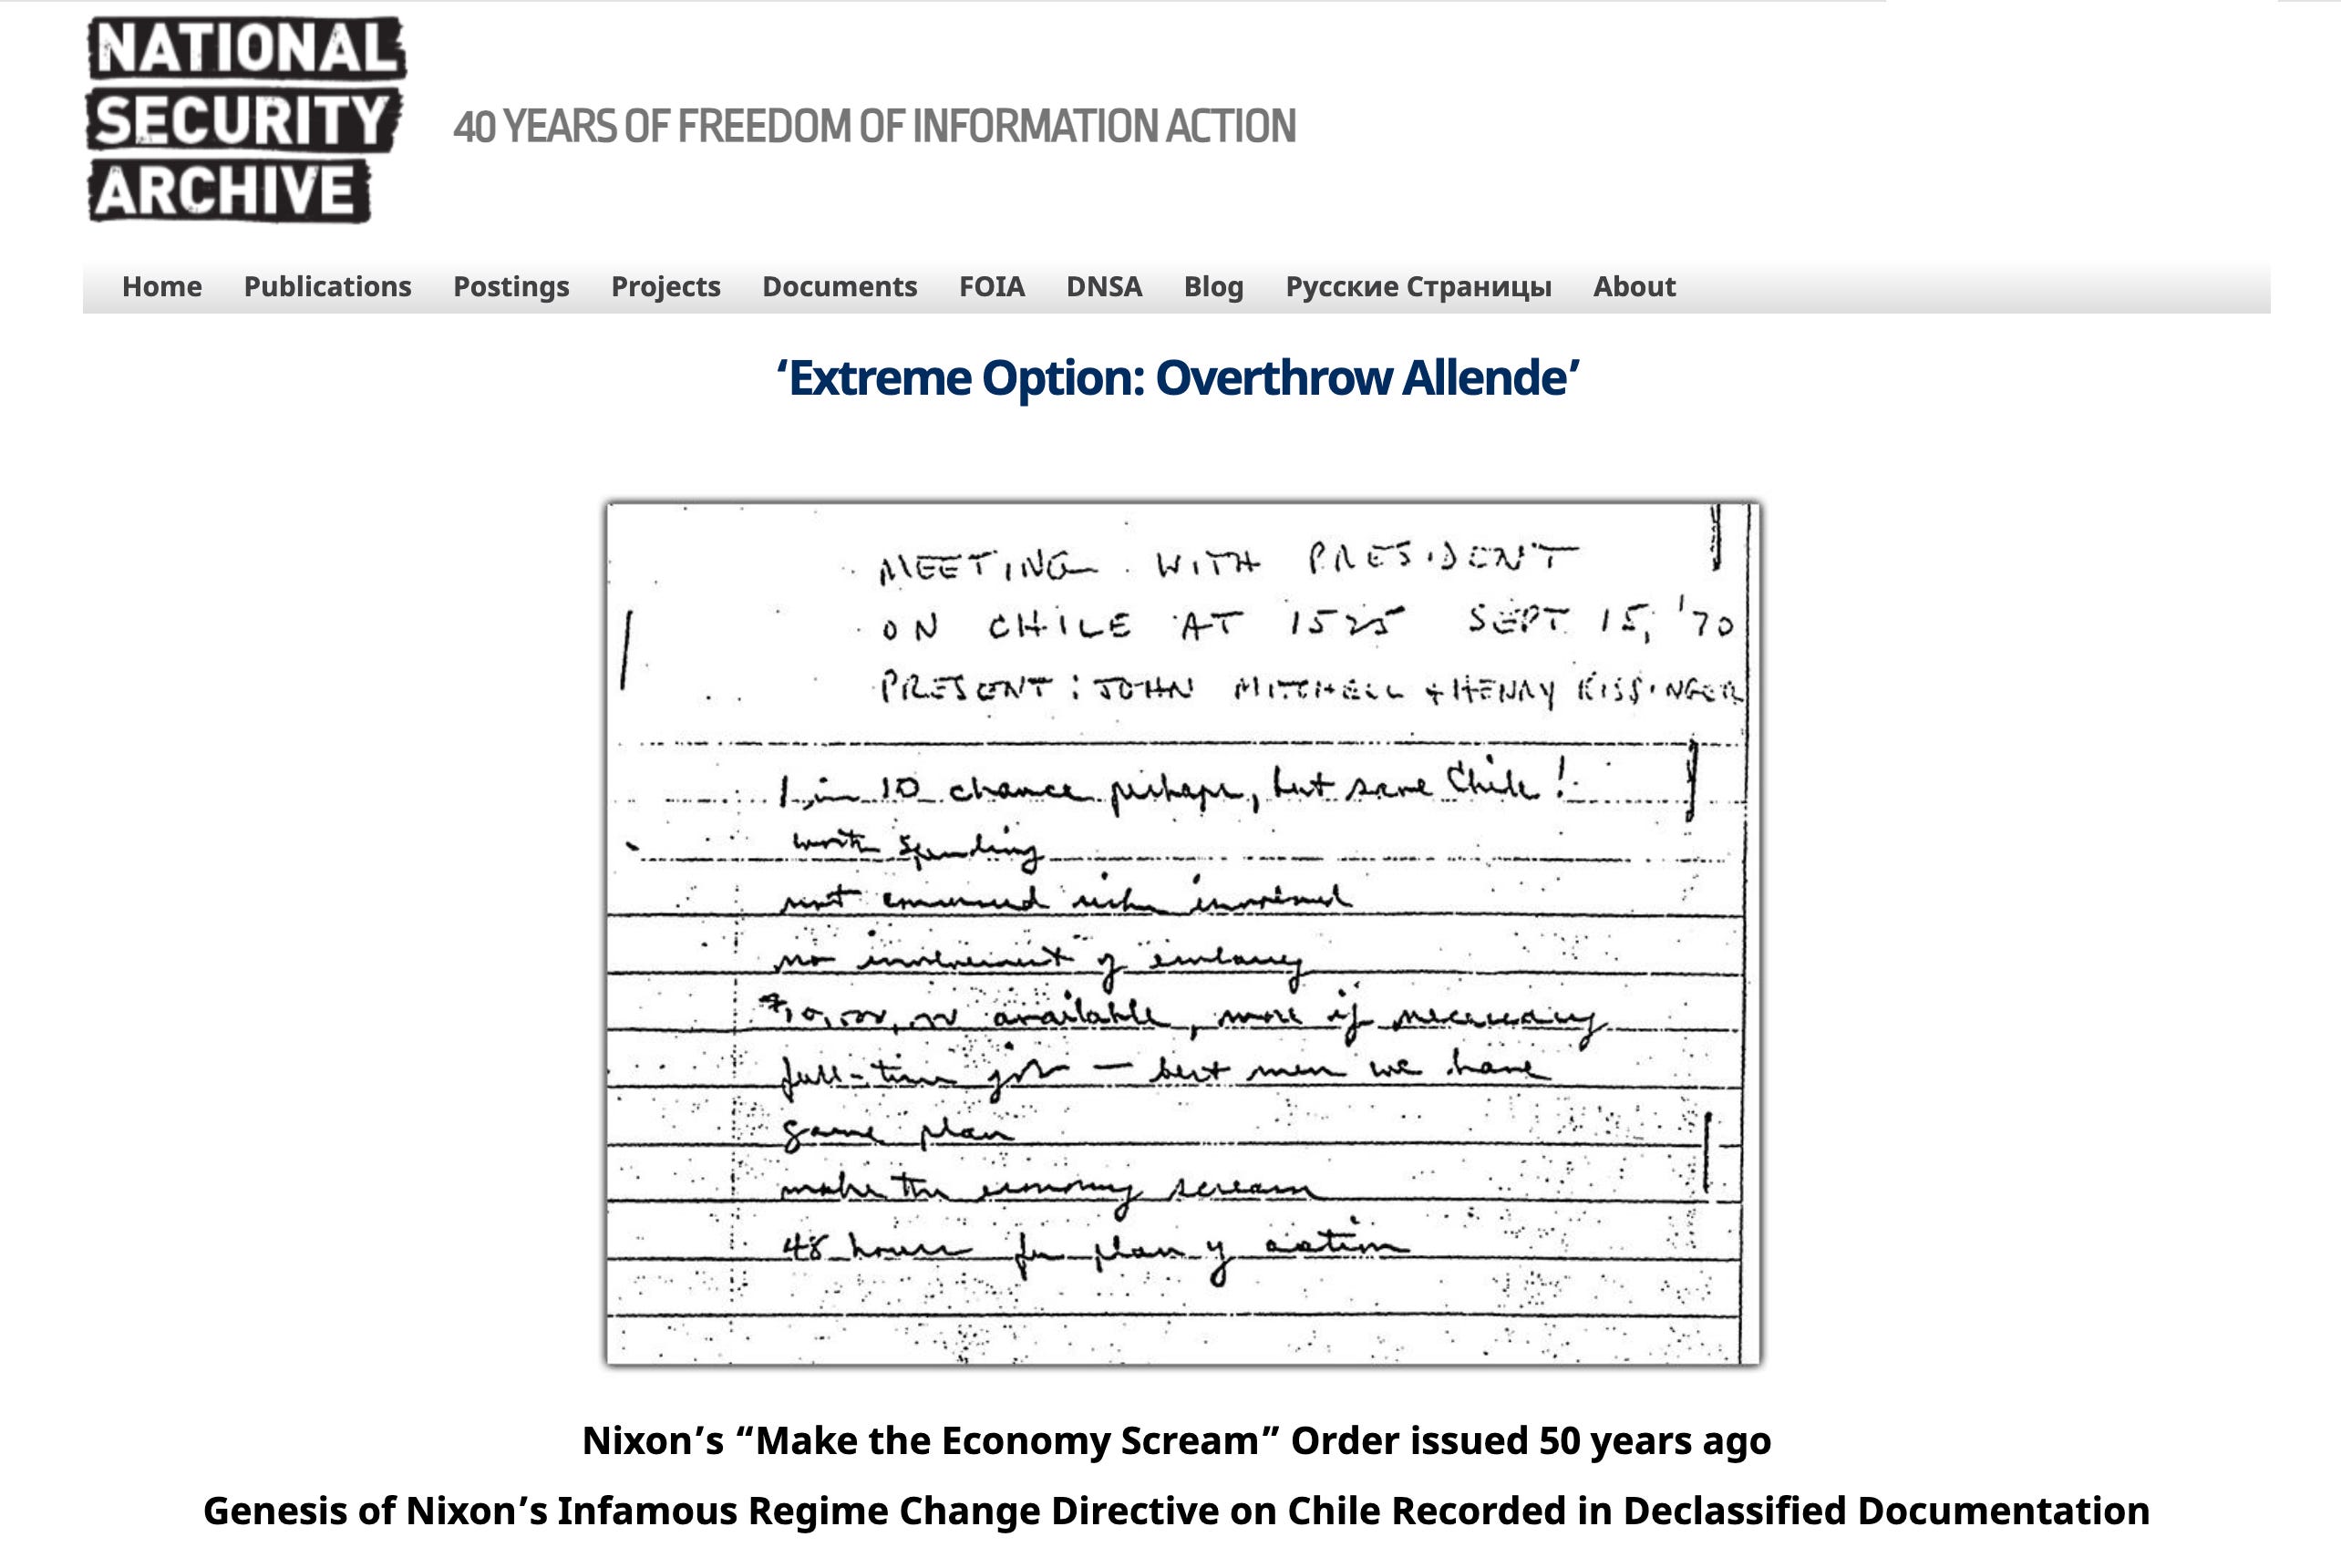 NATIONAL
SECURITY
ARCHIVE
40 YEARS OF FREEDOM OF INFORMATION ACTION
Home Publications Postings Projects Documents FOIA DNSA Blog Русские Страницы About
‘Extreme Option: Overthrow Allende’
MEETING WITH PRESIDENT
ON CHILE AT 1525 SEPT 15, '70
PRESENT: JOHN MITCHELL + HENRY KISSINGER
1 in 10 chance perhaps, but save Chile!
worth spending
not concerned risks involved
no involvement of embassy
$10,000,000 available, more if necessary
full-time job — best men we have
game plan
make the economy scream
48 hours for plan of action
Nixon’s “Make the Economy Scream” Order issued 50 years ago
Genesis of Nixon’s Infamous Regime Change Directive on Chile Recorded in Declassified Documentation